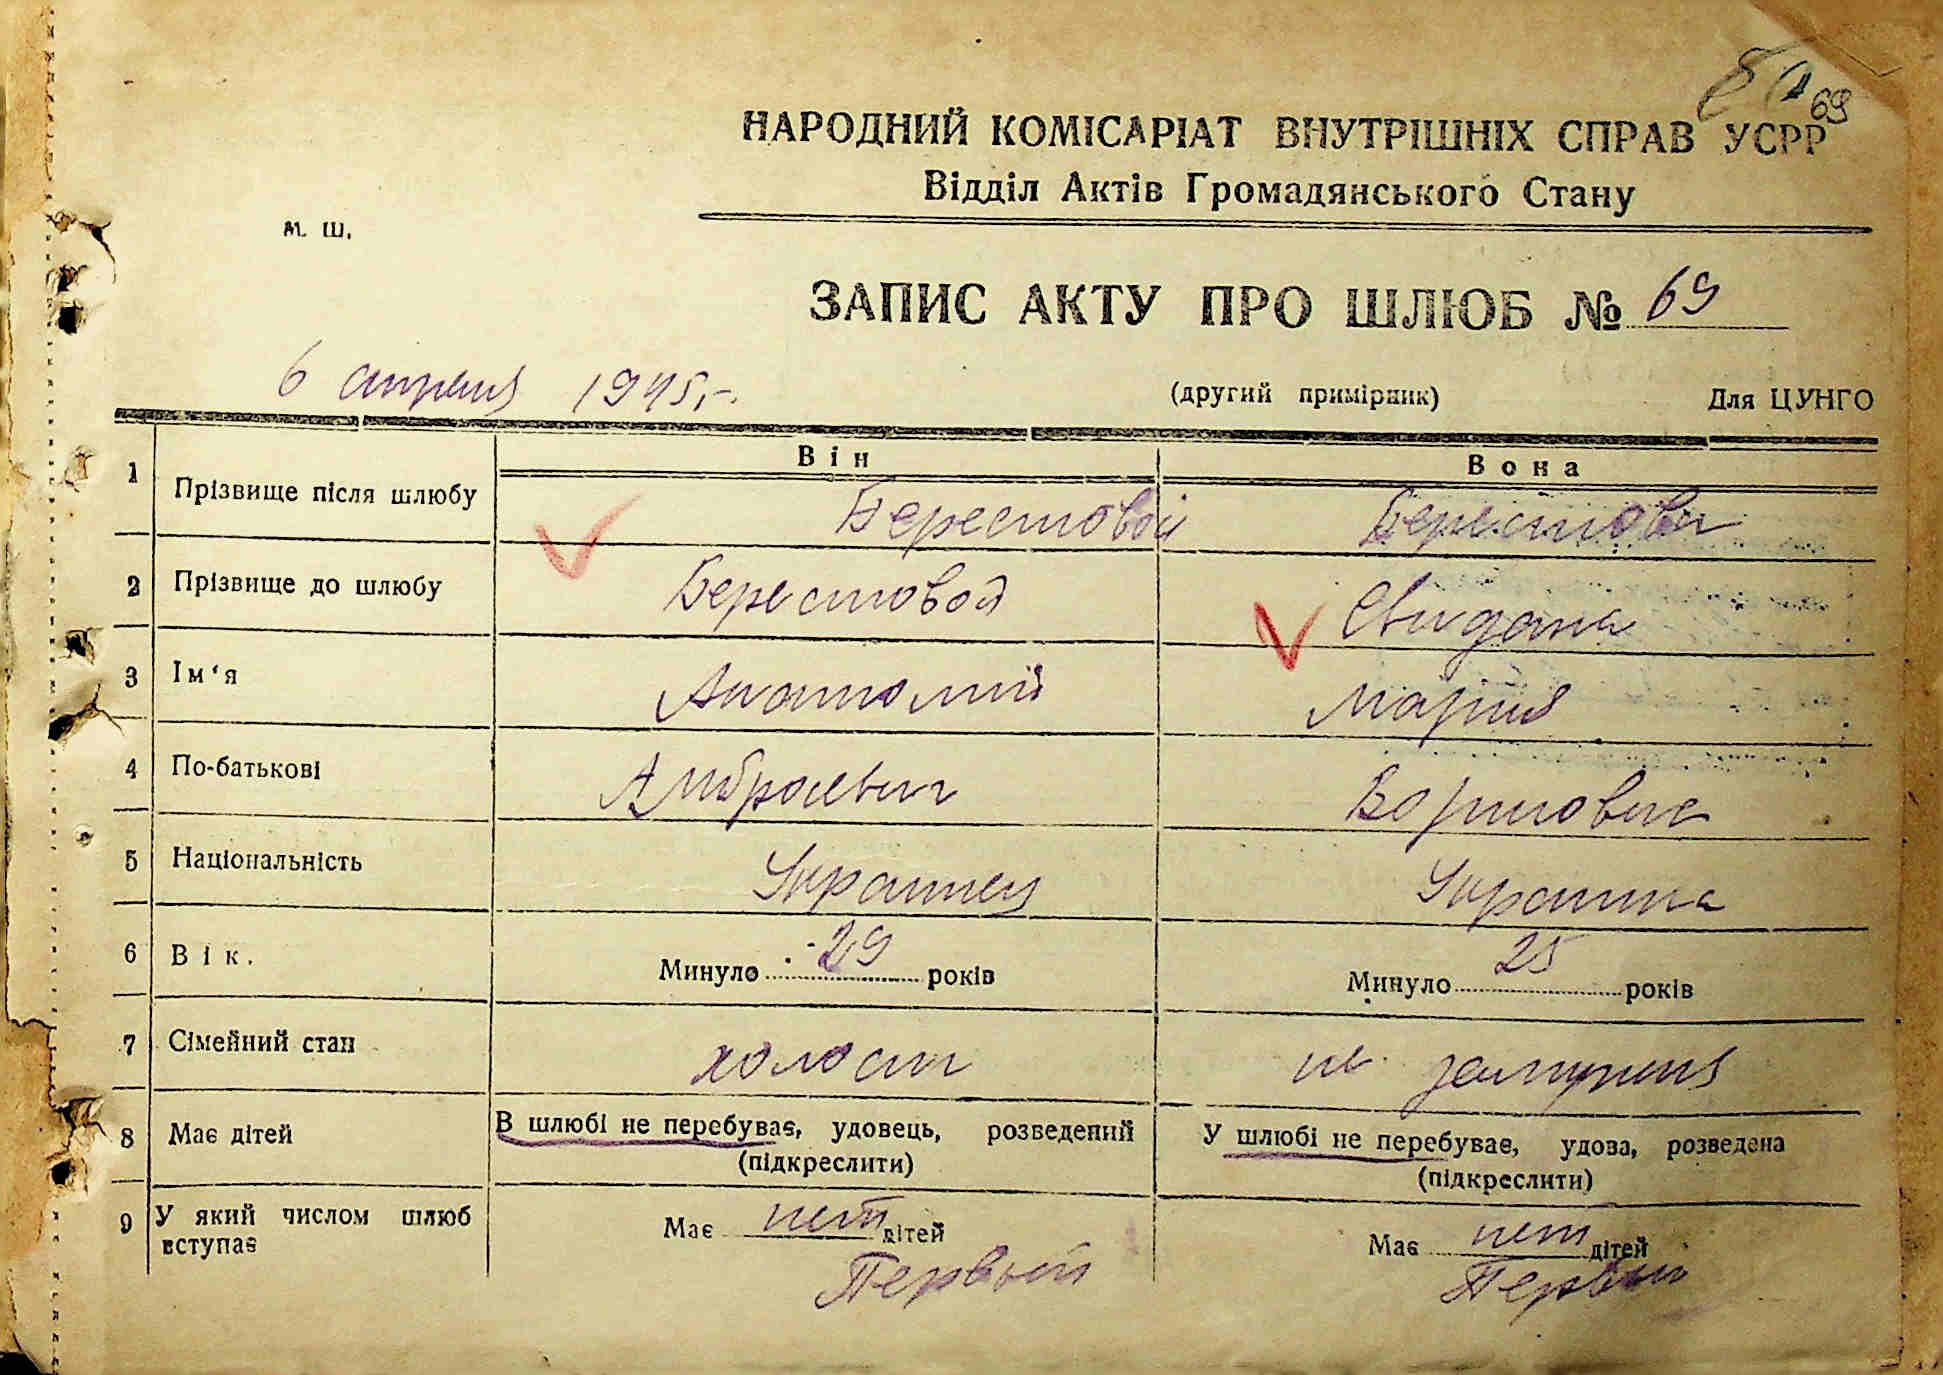 69
НАРОДНИЙ КОМІСАРІАТ ВНУТРІШНІХ СПРАВ УСРР
Відділ Актів Громадянського Стану
М. Ш.
ЗАПИС АКТУ ПРО ШЛЮБ № 69
6 апреля 1945 г.
(другий примірник) Для ЦУНГО
Він Вона
1 Прізвище після шлюбу Берестовой Берестовая
2 Прізвище до шлюбу Берестовой Свидана
3 Ім‘я Анатолий Мария
4 По-батькові Амбросевич Борисовна
5 Національність Украинец Украинка
6 Вік. Минуло 29 років Минуло 25 років
7 Сімейний стан холост не замужняя
8 Має дітей В шлюбі не перебуває, удовець, розведений У шлюбі не перебуває, удова, розведена
(підкреслити) (підкреслити)
9 У який числом шлюб вступає Має нет дітей Має нет дітей
Первый Первый